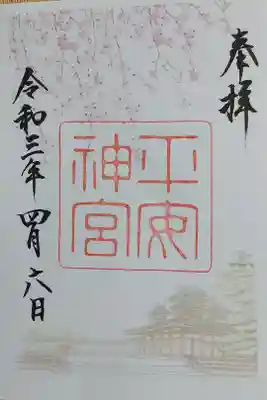 奉拝
平安
神宮
令和三年 四月 六日